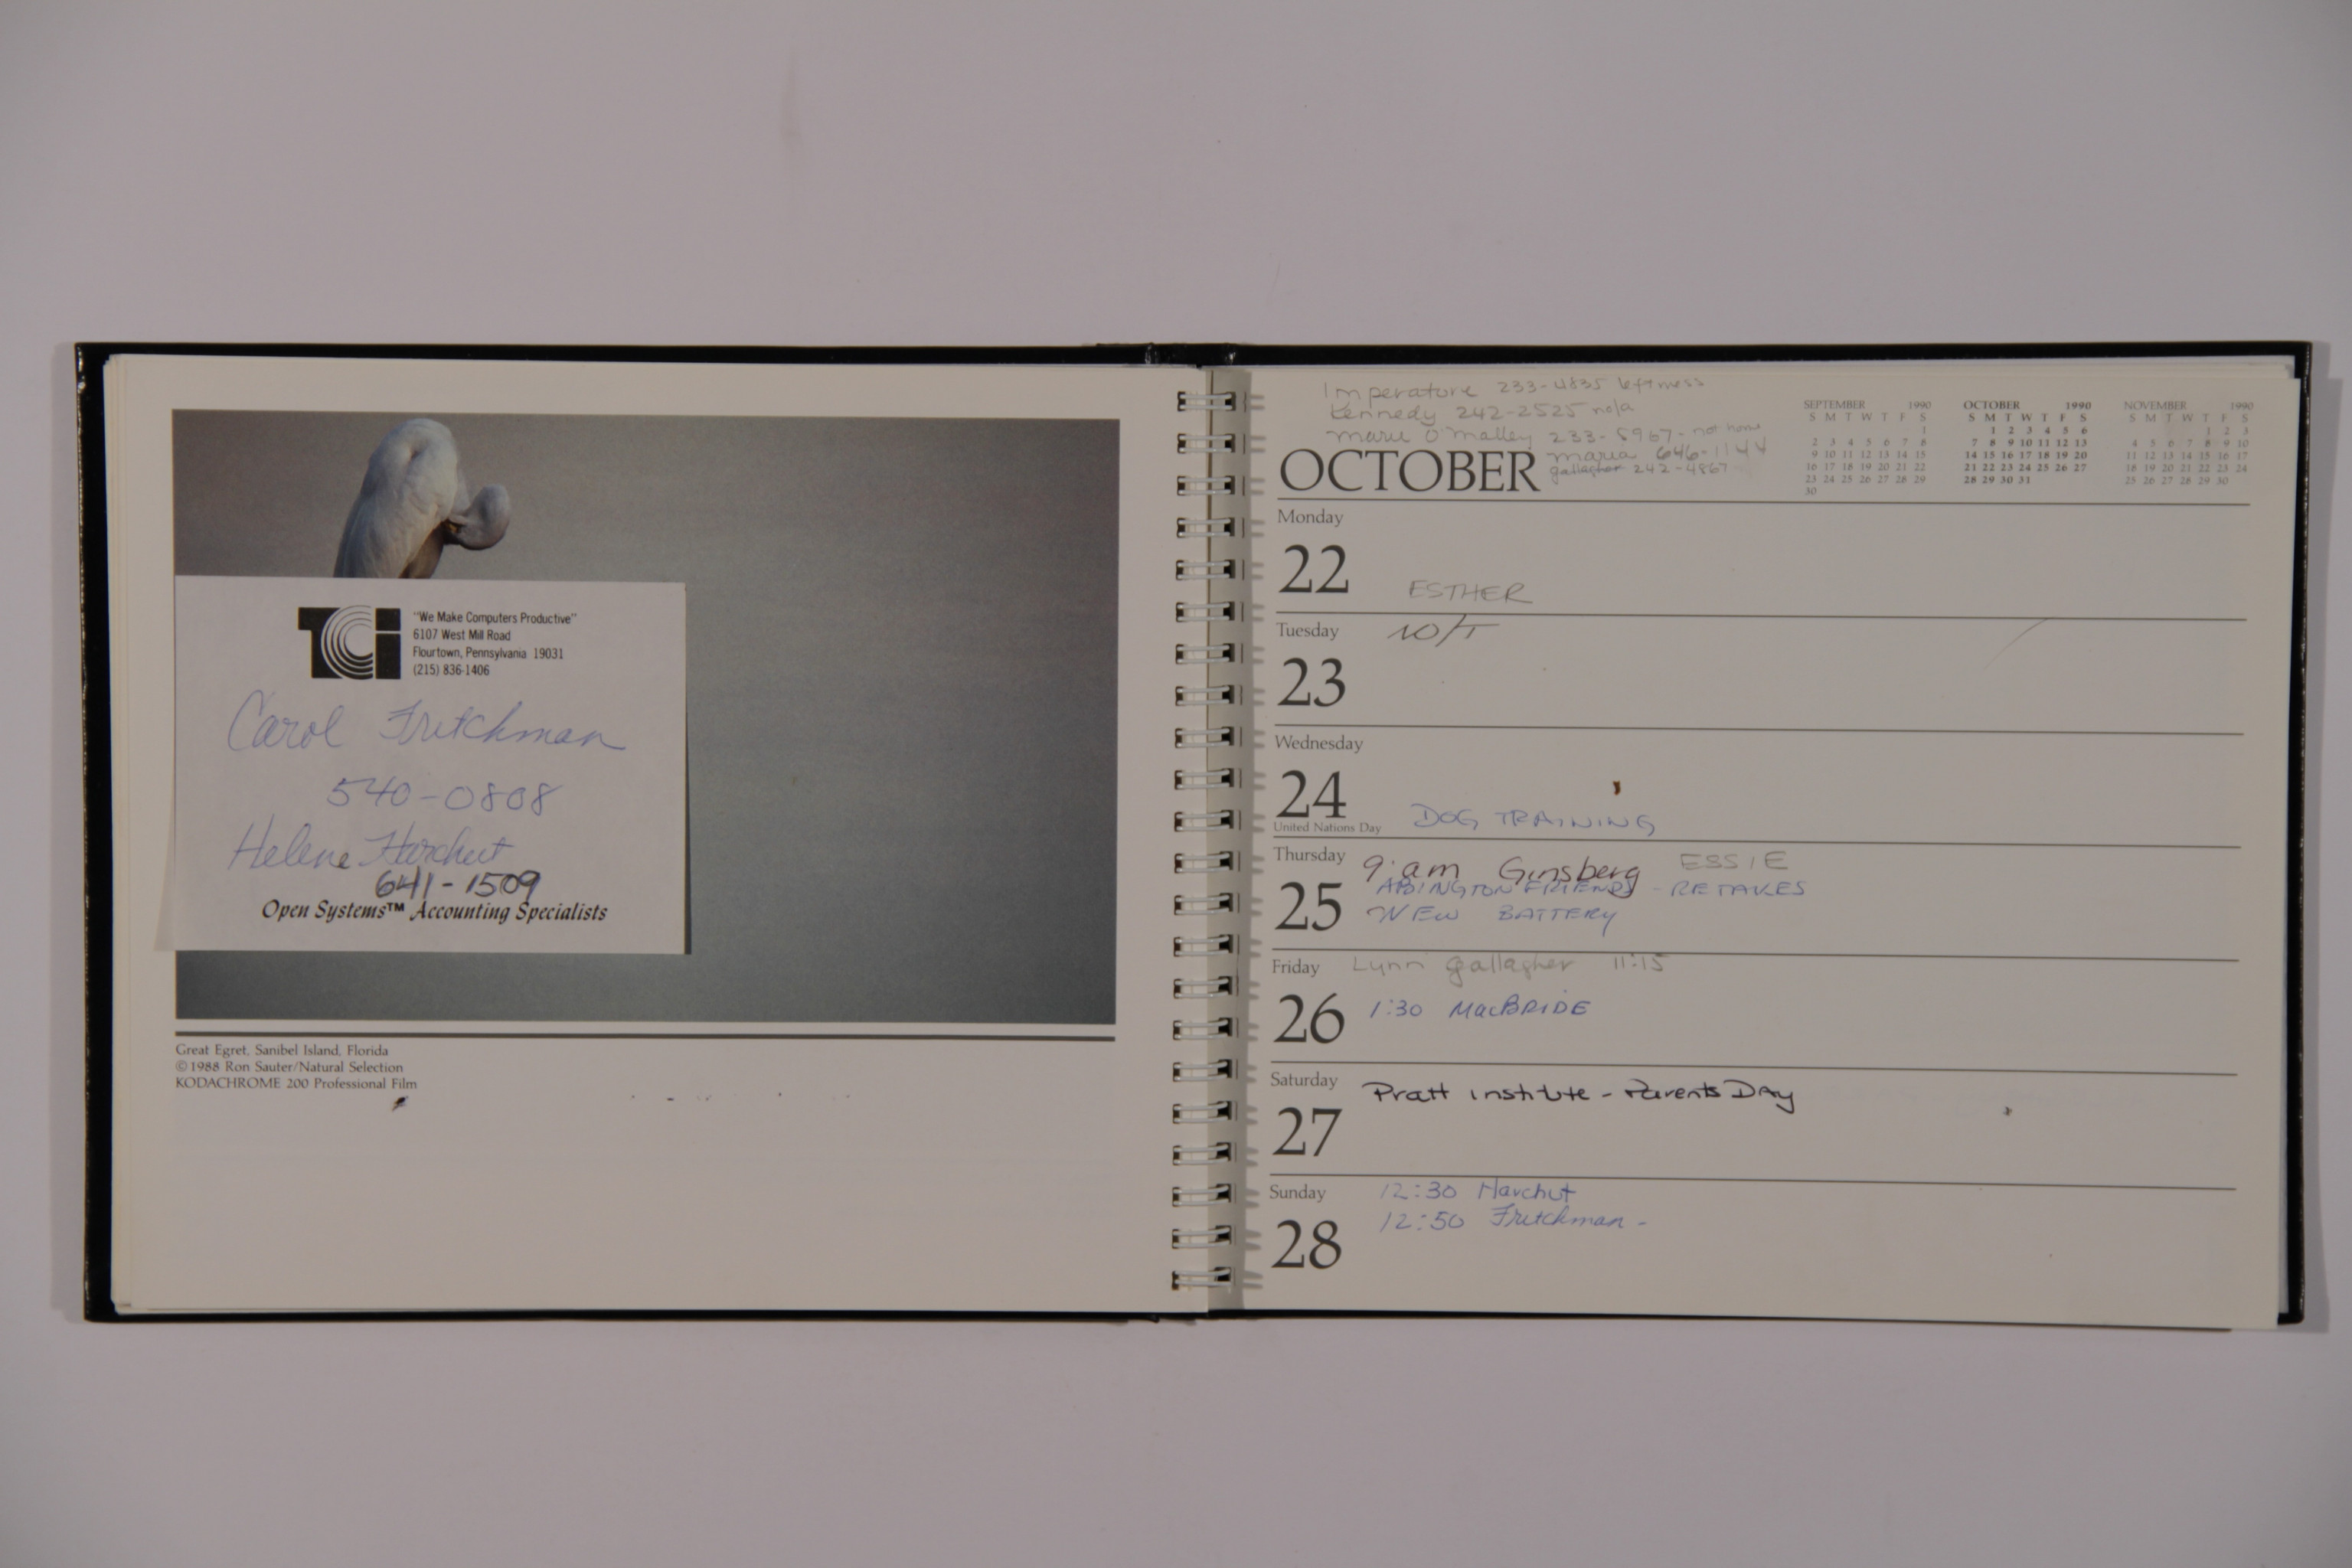 TCi
"We Make Computers Productive"
6107 West Mill Road
Flourtown, Pennsylvania 19031
(215) 836-1406
Carol Fritchman
540-0808
Helene Harchut
641-1509
Open Systems™ Accounting Specialists
Great Egret, Sanibel Island, Florida
©1988 Ron Sauter/Natural Selection
KODACHROME 200 Professional Film
Imperatore 233-4835 left mess
Kennedy 242-2525 no/a
Marie O'Malley 233-5967 - not home
maria 646-1144
gallagher 242-4867
OCTOBER
SEPTEMBER 1990
S M T W T F S
1
2 3 4 5 6 7 8
9 10 11 12 13 14 15
16 17 18 19 20 21 22
23 24 25 26 27 28 29
30
OCTOBER 1990
S M T W T F S
1 2 3 4 5 6
7 8 9 10 11 12 13
14 15 16 17 18 19 20
21 22 23 24 25 26 27
28 29 30 31
NOVEMBER 1990
S M T W T F S
1 2 3
4 5 6 7 8 9 10
11 12 13 14 15 16 17
18 19 20 21 22 23 24
25 26 27 28 29 30
Monday
22
ESTHER
Tuesday
23
Wednesday
24
United Nations Day
DOG TRAINING
Thursday
25
9 am Ginsberg ESSIE
ABINGTON FRIENDS - RETAKES
NEW BATTERY
Friday
26
Lynn gallagher 11:15
1:30 MacBRIDE
Saturday
27
Pratt institute - Parents DAy
Sunday
28
12:30 Harchut
12:50 Fritchman -